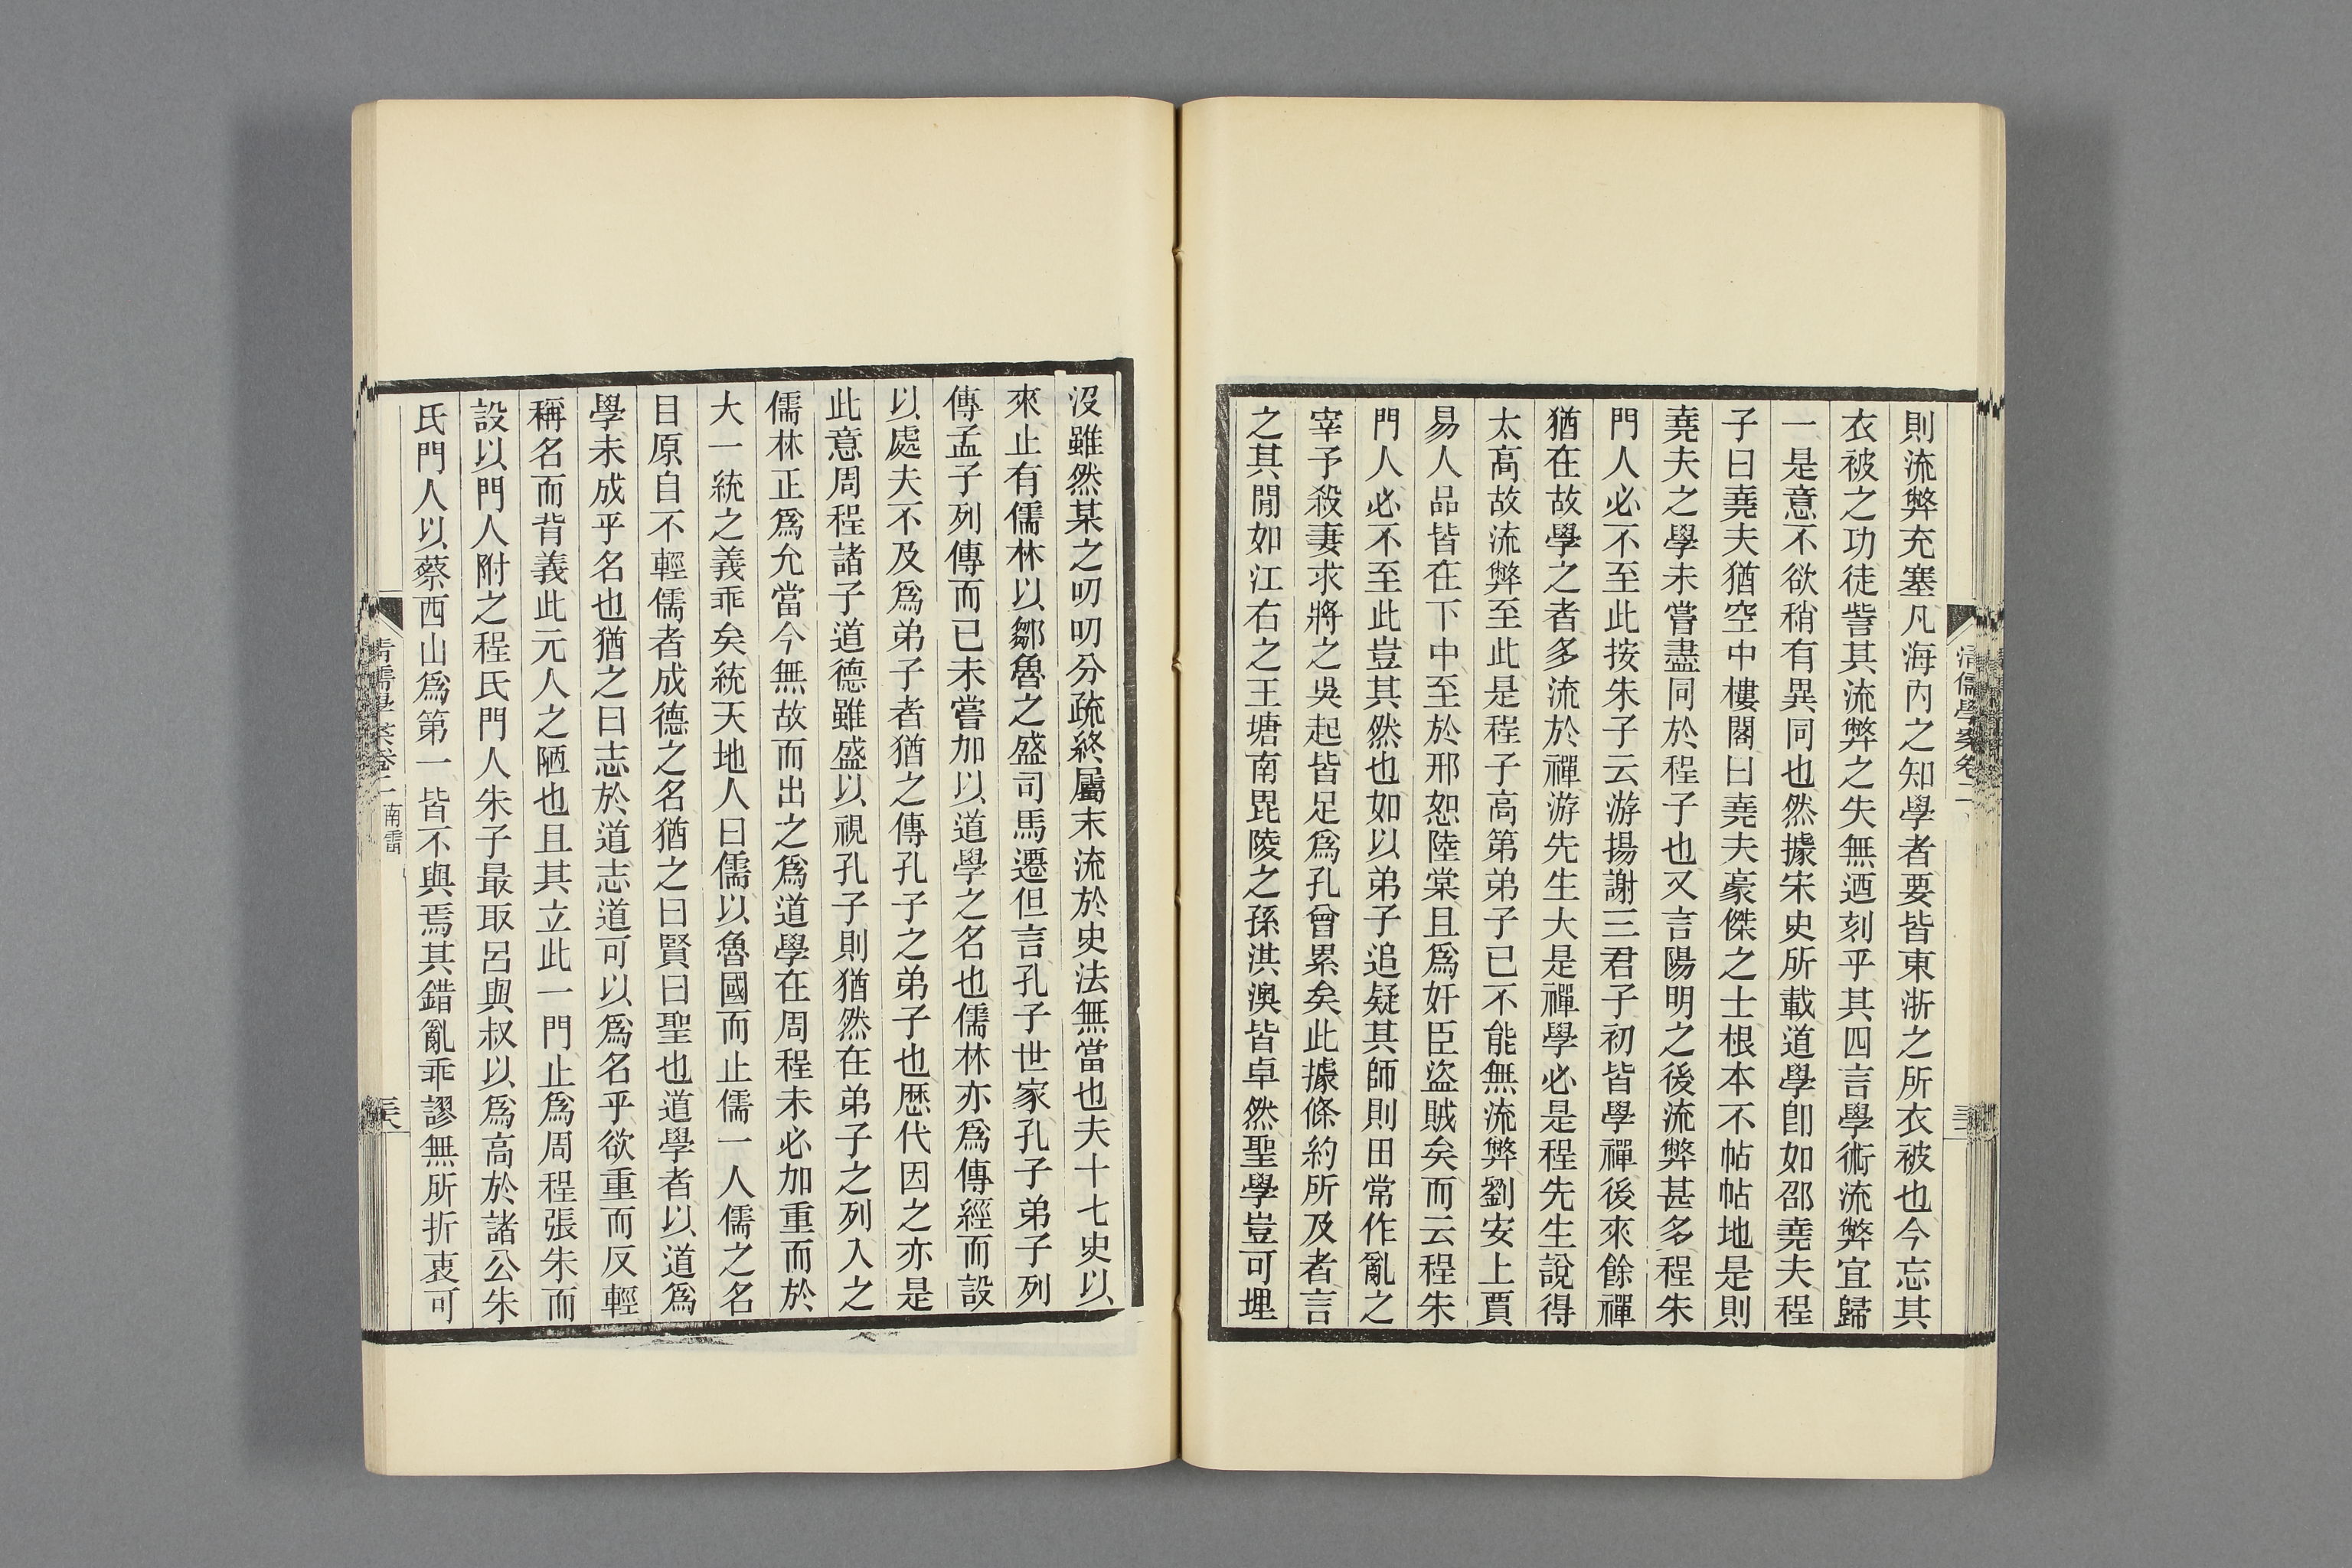 則流弊充塞凡海內之知學者要皆東浙之所衣被也今忘其
衣被之功徒訾其流弊之失無迺刻乎其四言學術流弊宜歸
一是意不欲稍有異同也然據宋史所載道學卽如邵堯夫程
子曰堯夫猶空中樓閣曰堯夫豪傑之士根本不帖帖地是則
堯夫之學未嘗盡同於程子也又言陽明之後流弊甚多程朱
門人必不至此按朱子云游揚謝三君子初皆學禪後來餘禪
猶在故學之者多流於禪游先生大是禪學必是程先生說得
太高故流弊至此是程子高第弟子已不能無流弊劉安上賈
易人品皆在下中至於邢恕陸棠且爲奸臣盜賊矣而云程朱
門人必不至此豈其然也如以弟子追疑其師則田常作亂之
宰予殺妻求將之吳起皆足爲孔曾累矣此據條約所及者言
之其閒如江右之王塘南毘陵之孫淇澳皆卓然聖學豈可埋
清儒學案卷二
沒雖然某之叨叨分疏終屬末流於史法無當也夫十七史以
來止有儒林以鄒魯之盛司馬遷但言孔子世家孔子弟子列
傳孟子列傳而已未嘗加以道學之名也儒林亦爲傳經而設
以處夫不及爲弟子者猶之傳孔子之弟子也歷代因之亦是
此意周程諸子道德雖盛以視孔子則猶然在弟子之列入之
儒林正爲允當今無故而出之爲道學在周程未必加重而於
大一統之義乖矣統天地人曰儒以魯國而止儒一人儒之名
目原自不輕儒者成德之名猶之曰賢曰聖也道學者以道爲
學未成乎名也猶之曰志於道志道可以爲名乎欲重而反輕
稱名而背義此元人之陋也且其立此一門止爲周程張朱而
設以門人附之程氏門人朱子最取呂與叔以爲高於諸公朱
氏門人以蔡西山爲第一皆不與焉其錯亂乖謬無所折衷可
清儒學案卷二 南雷